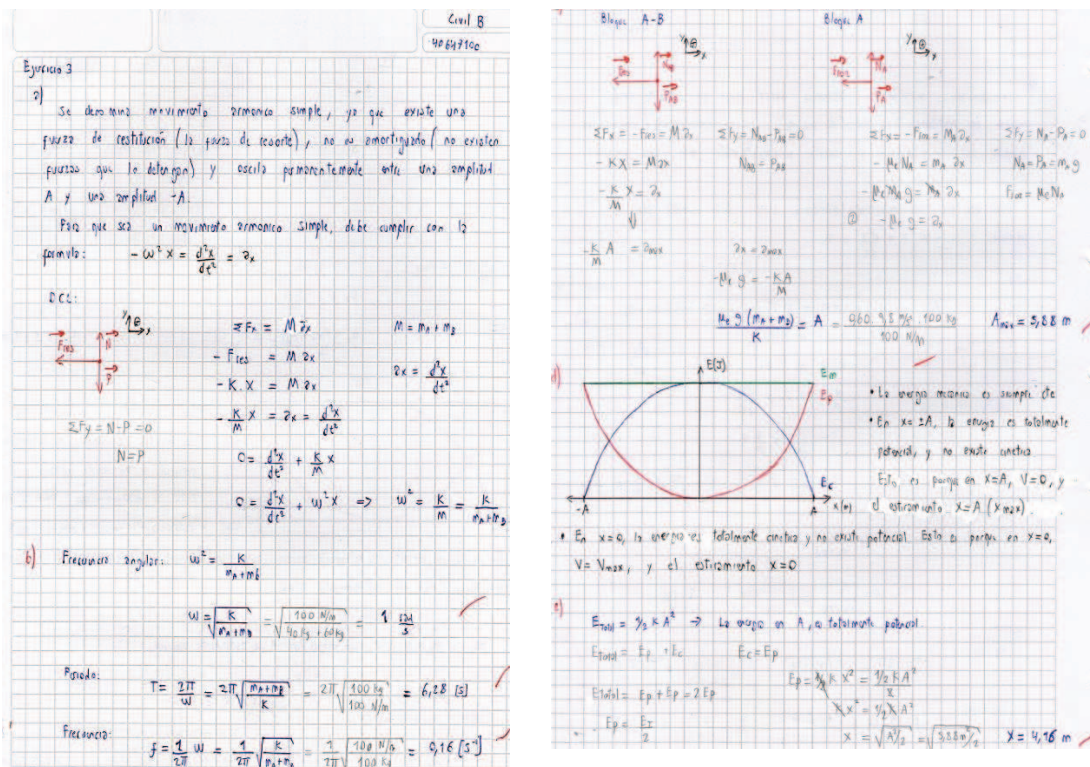 Civil B
40647100
Ejercicio 3
a)
Se denomina movimiento armonico simple, ya que existe una
fuerza de restitución (la fuerza de resorte), no es amortiguado (no existen
fuerzas que lo detengan) y oscila permanentemente entre una amplitud
A y una amplitud -A.
Para que sea un movimiento armonico simple, debe cumplir con la
formula: -ω² x = d²x/dt² = ax
DCL:
y ⊕ x
Fres N P
ΣFx = M ax M = mA + mB
- Fres = M ax
- K. X = M ax ax = d²x/dt²
- K/M X = ax = d²x/dt²
ΣFy = N-P = 0
N=P
0 = d²x/dt² + K/M x
0 = d²x/dt² + ω² x => ω² = K/M = K/(mA+mB)
b) Frecuencia angular: ω² = K/(mA+mB)
ω = √(K/(mA+mB)) = √(100 N/m / (40 Kg + 60 Kg)) = 1 rad/s
Periodo:
T = 2π/ω = 2π √((mA+mB)/K) = 2π √(100 Kg / 100 N/m) = 6,28 [s]
Frecuencia:
f = 1/2π ω = 1/2π √(K/(mA+mB)) = 1/2π √(100 N/m / 100 Kg) = 0,16 [s⁻¹]
Bloque A-B Bloque A
y ⊕ x y ⊕ x
Fres NAB PAB
Froz NA PA
ΣFx = -Fres = M ax ΣFy = NAB - PAB = 0 ΣFx = -Froz = MA ax ΣFy = NA - PA = 0
- KX = M ax NAB = PAB - μe NA = mA ax NA = PA = mA g
- K/M X = ax - μe MA g = MA ax Froz = μe NA
- μe g = ax
- K/M A = amax ax = amax
-μe g = -KA/M
μe g (mA+mB)/K = A = 0,60 . 9,8 m/s² . 100 Kg / 100 N/m Amax = 5,88 m
d)
E(J)
Em
Ep
Ec
-A A x(m)
• La energia mecanica es siempre cte
• En x=±A, la energia es totalmente
potencial, y no existe cinetica
Esto es porque en x=A, V=0, y
el estiramiento x=A (x max).
• En x=0, la energia es totalmente cinetica y no existe potencial. Esto es porque en x=0,
V= Vmax, y el estiramiento x=0
e)
ETotal = 1/2 K A² → La energia en A, es totalmente potencial
ETotal = Ep + Ec Ec = Ep
ETotal = Ep + Ep = 2 Ep
Ep = 1/2 K X² = 1/2 K A² / 2
Ep = ET/2
K x² = 1/2 K A²
x = √(A²/2) = √(5,88 m²/2) X = 4,16 m